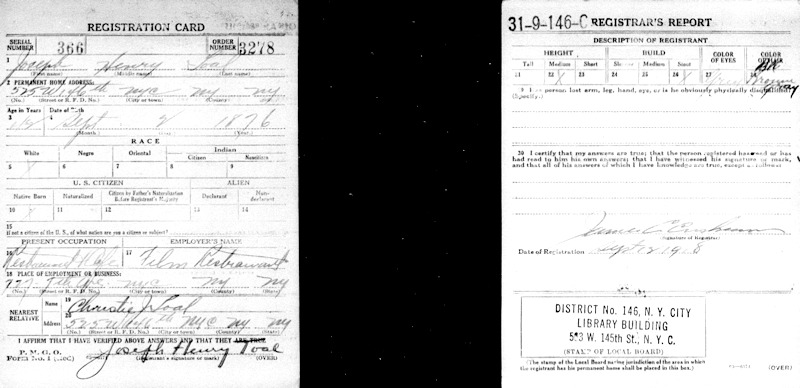 REGISTRATION CARD
SERIAL NUMBER 366 ORDER NUMBER 3278
1 Joseph Henry Toal
(First name) (Middle name) (Last name)
2 PERMANENT HOME ADDRESS:
525 W 146th NYC NY NY
(No.) (Street or R. F. D. No.) (City or town) (County) (State)
Age in Years Date of Birth
3 4 Sept 2 1876
(Month.) (Day.) (Year.)
RACE
White Negro Oriental Indian
Citizen Noncitizen
5 X 6 7 8 9
U. S. CITIZEN ALIEN
Native Born Naturalized Citizen by Father's Naturalization Before Registrant's Majority Declarant Non-declarant
10 X 11 12 13 14
15
If not a citizen of the U. S., of what nation are you a citizen or subject?
PRESENT OCCUPATION EMPLOYER'S NAME
16 Restaurant 17 Restaurant
18 PLACE OF EMPLOYMENT OR BUSINESS:
7th Ave NYC NY NY
(No.) (Street or R. F. D. No.) (City or town) (County) (State)
NEAREST RELATIVE Name 19 Christie Toal
Address 20 525 W 146th NYC NY NY
(No.) (Street or R. F. D. No.) (City or town) (County) (State)
I AFFIRM THAT I HAVE VERIFIED ABOVE ANSWERS AND THAT THEY ARE TRUE
P. M. G. O.
Form No. 1 (Red) Joseph Henry Toal
(Registrant's signature or mark) (OVER)
31-9-146-C REGISTRAR'S REPORT
DESCRIPTION OF REGISTRANT
HEIGHT BUILD COLOR OF EYES COLOR OF HAIR
Tall Medium Short Slender Medium Stout
21 22 X 23 24 25 26 X 27 28
29 Has person lost arm, leg, hand, eye, or is he obviously physically disqualified?
(Specify.)
30 I certify that my answers are true; that the person registered has read or has
had read to him his own answers; that I have witnessed his signature or mark,
and that all of his answers of which I have knowledge are true, except as follows:
James
(Signature of Registrar)
Date of Registration Sept 12 1918
DISTRICT No. 146, N. Y. CITY
LIBRARY BUILDING
503 W. 145th St., N. Y. C.
(STAMP OF LOCAL BOARD)
(The stamp of the Local Board having jurisdiction of the area in which
the registrant has his permanent home shall be placed in this box.) (OVER)